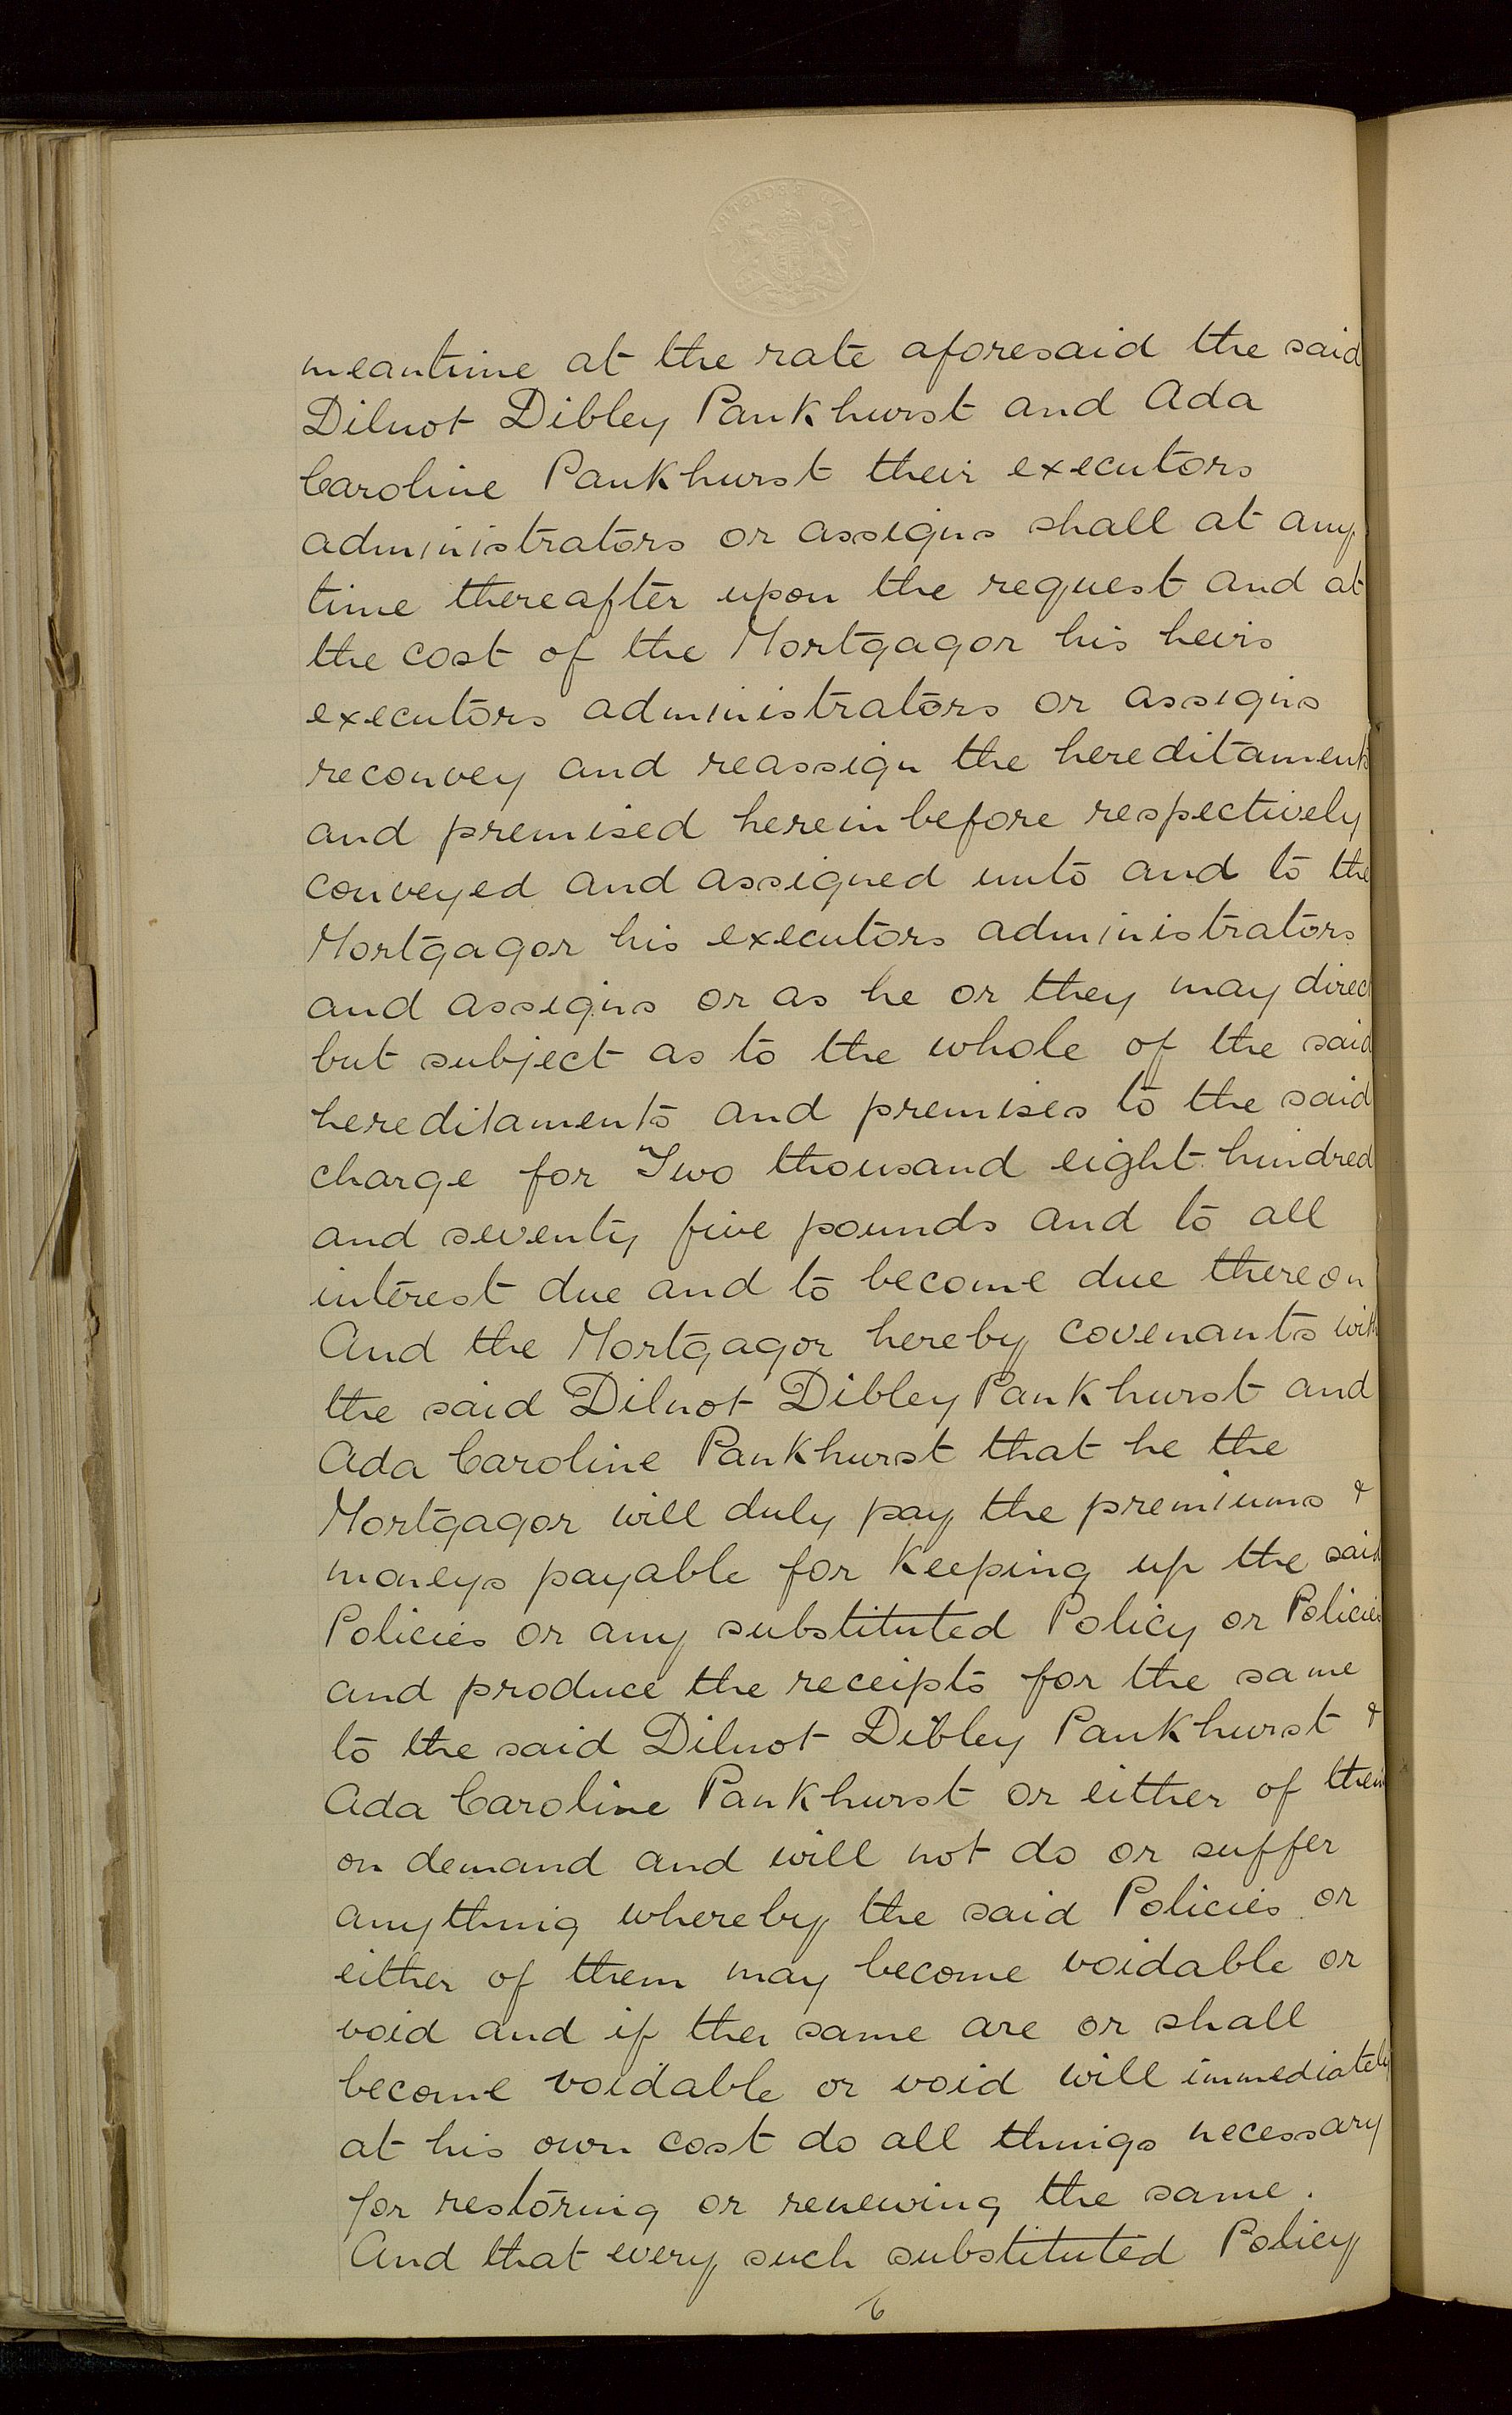 meantime at the rate aforesaid the said
Dilnot Dibley Pankhurst and Ada
Caroline Pankhurst their executors
administrators or assigns shall at any
time thereafter upon the request and at
the cost of the Mortgagor his heirs
executors administrators or assigns
reconvey and reassign the hereditaments
and premised herein before respectively
conveyed and assigned unto and to the
Mortgagor his executors administrators
and assigns or as he or they may direct
but subject as to the whole of the said
hereditaments and premises to the said
charge for Two thousand eight hundred
and seventy five pounds and to all
interest due and to become due thereon
And the Mortgagor hereby covenants with
the said Dilnot Dibley Pankhurst and
Ada Caroline Pankhurst that he the
Mortgagor will duly pay the premiums &
moneys payable for keeping up the said
Policies or any substituted Policy or Policies
and produce the receipts for the same
to the said Dilnot Dibley Pankhurst &
Ada Caroline Pankhurst or either of them
on demand and will not do or suffer
anything whereby the said Policies or
either of them may become voidable or
void and if the same are or shall
become voidable or void will immediately
at his own cost do all things necessary
for restoring or renewing the same.
And that every such substituted Policy
6